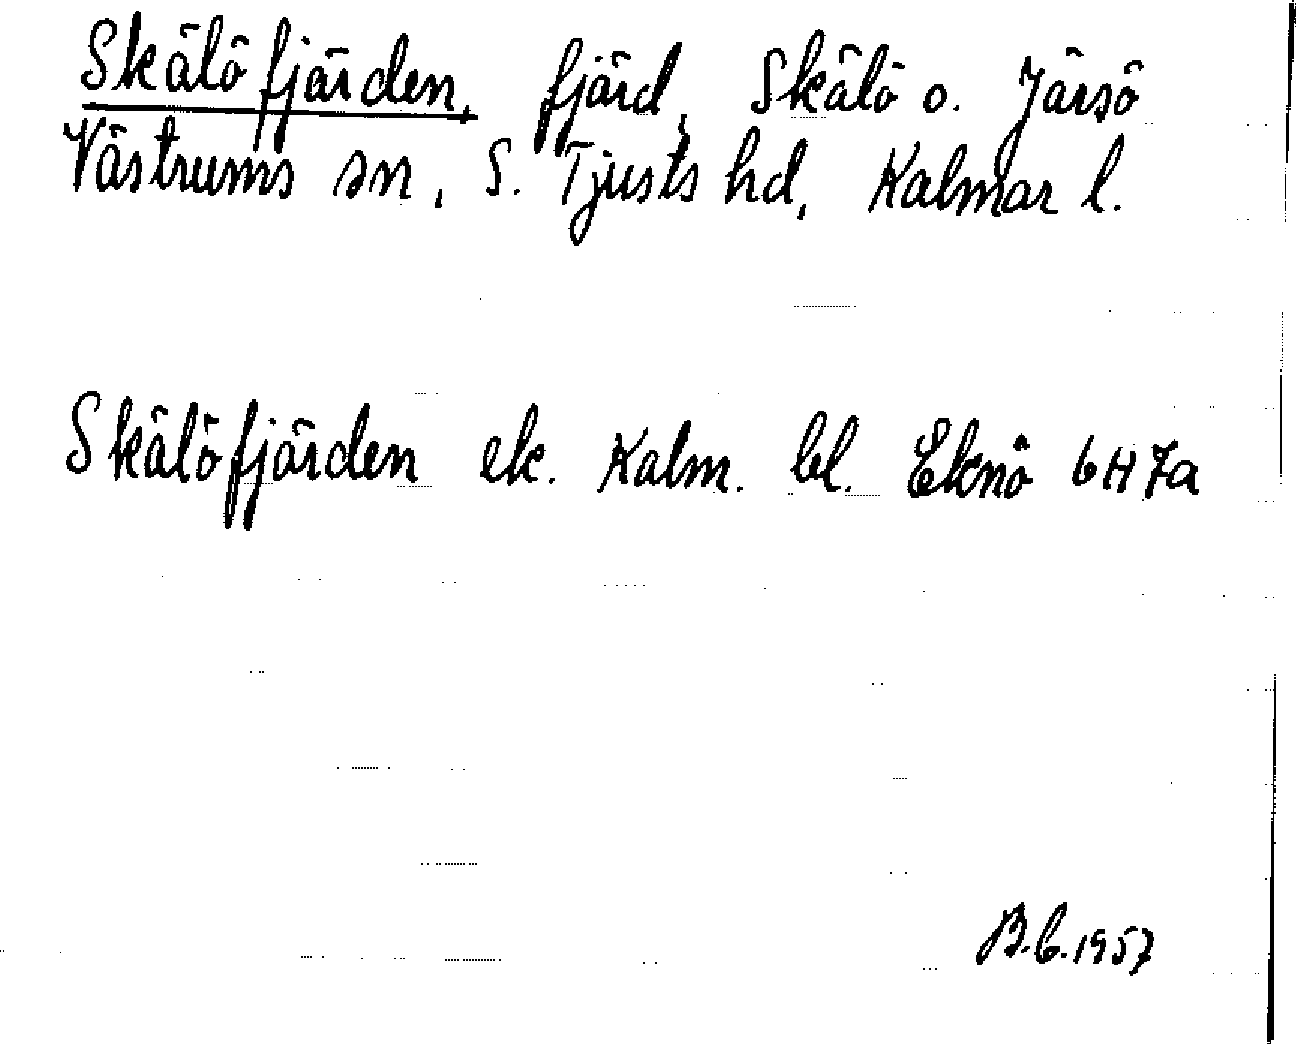 Skälöfjärden, fjärd, Skälö o. Järsö
Västrums sn, S. Tjusts hd, Kalmar l.
Skälöfjärden ek. Kalm. bl. Eknö 6H7a
B.C.1957